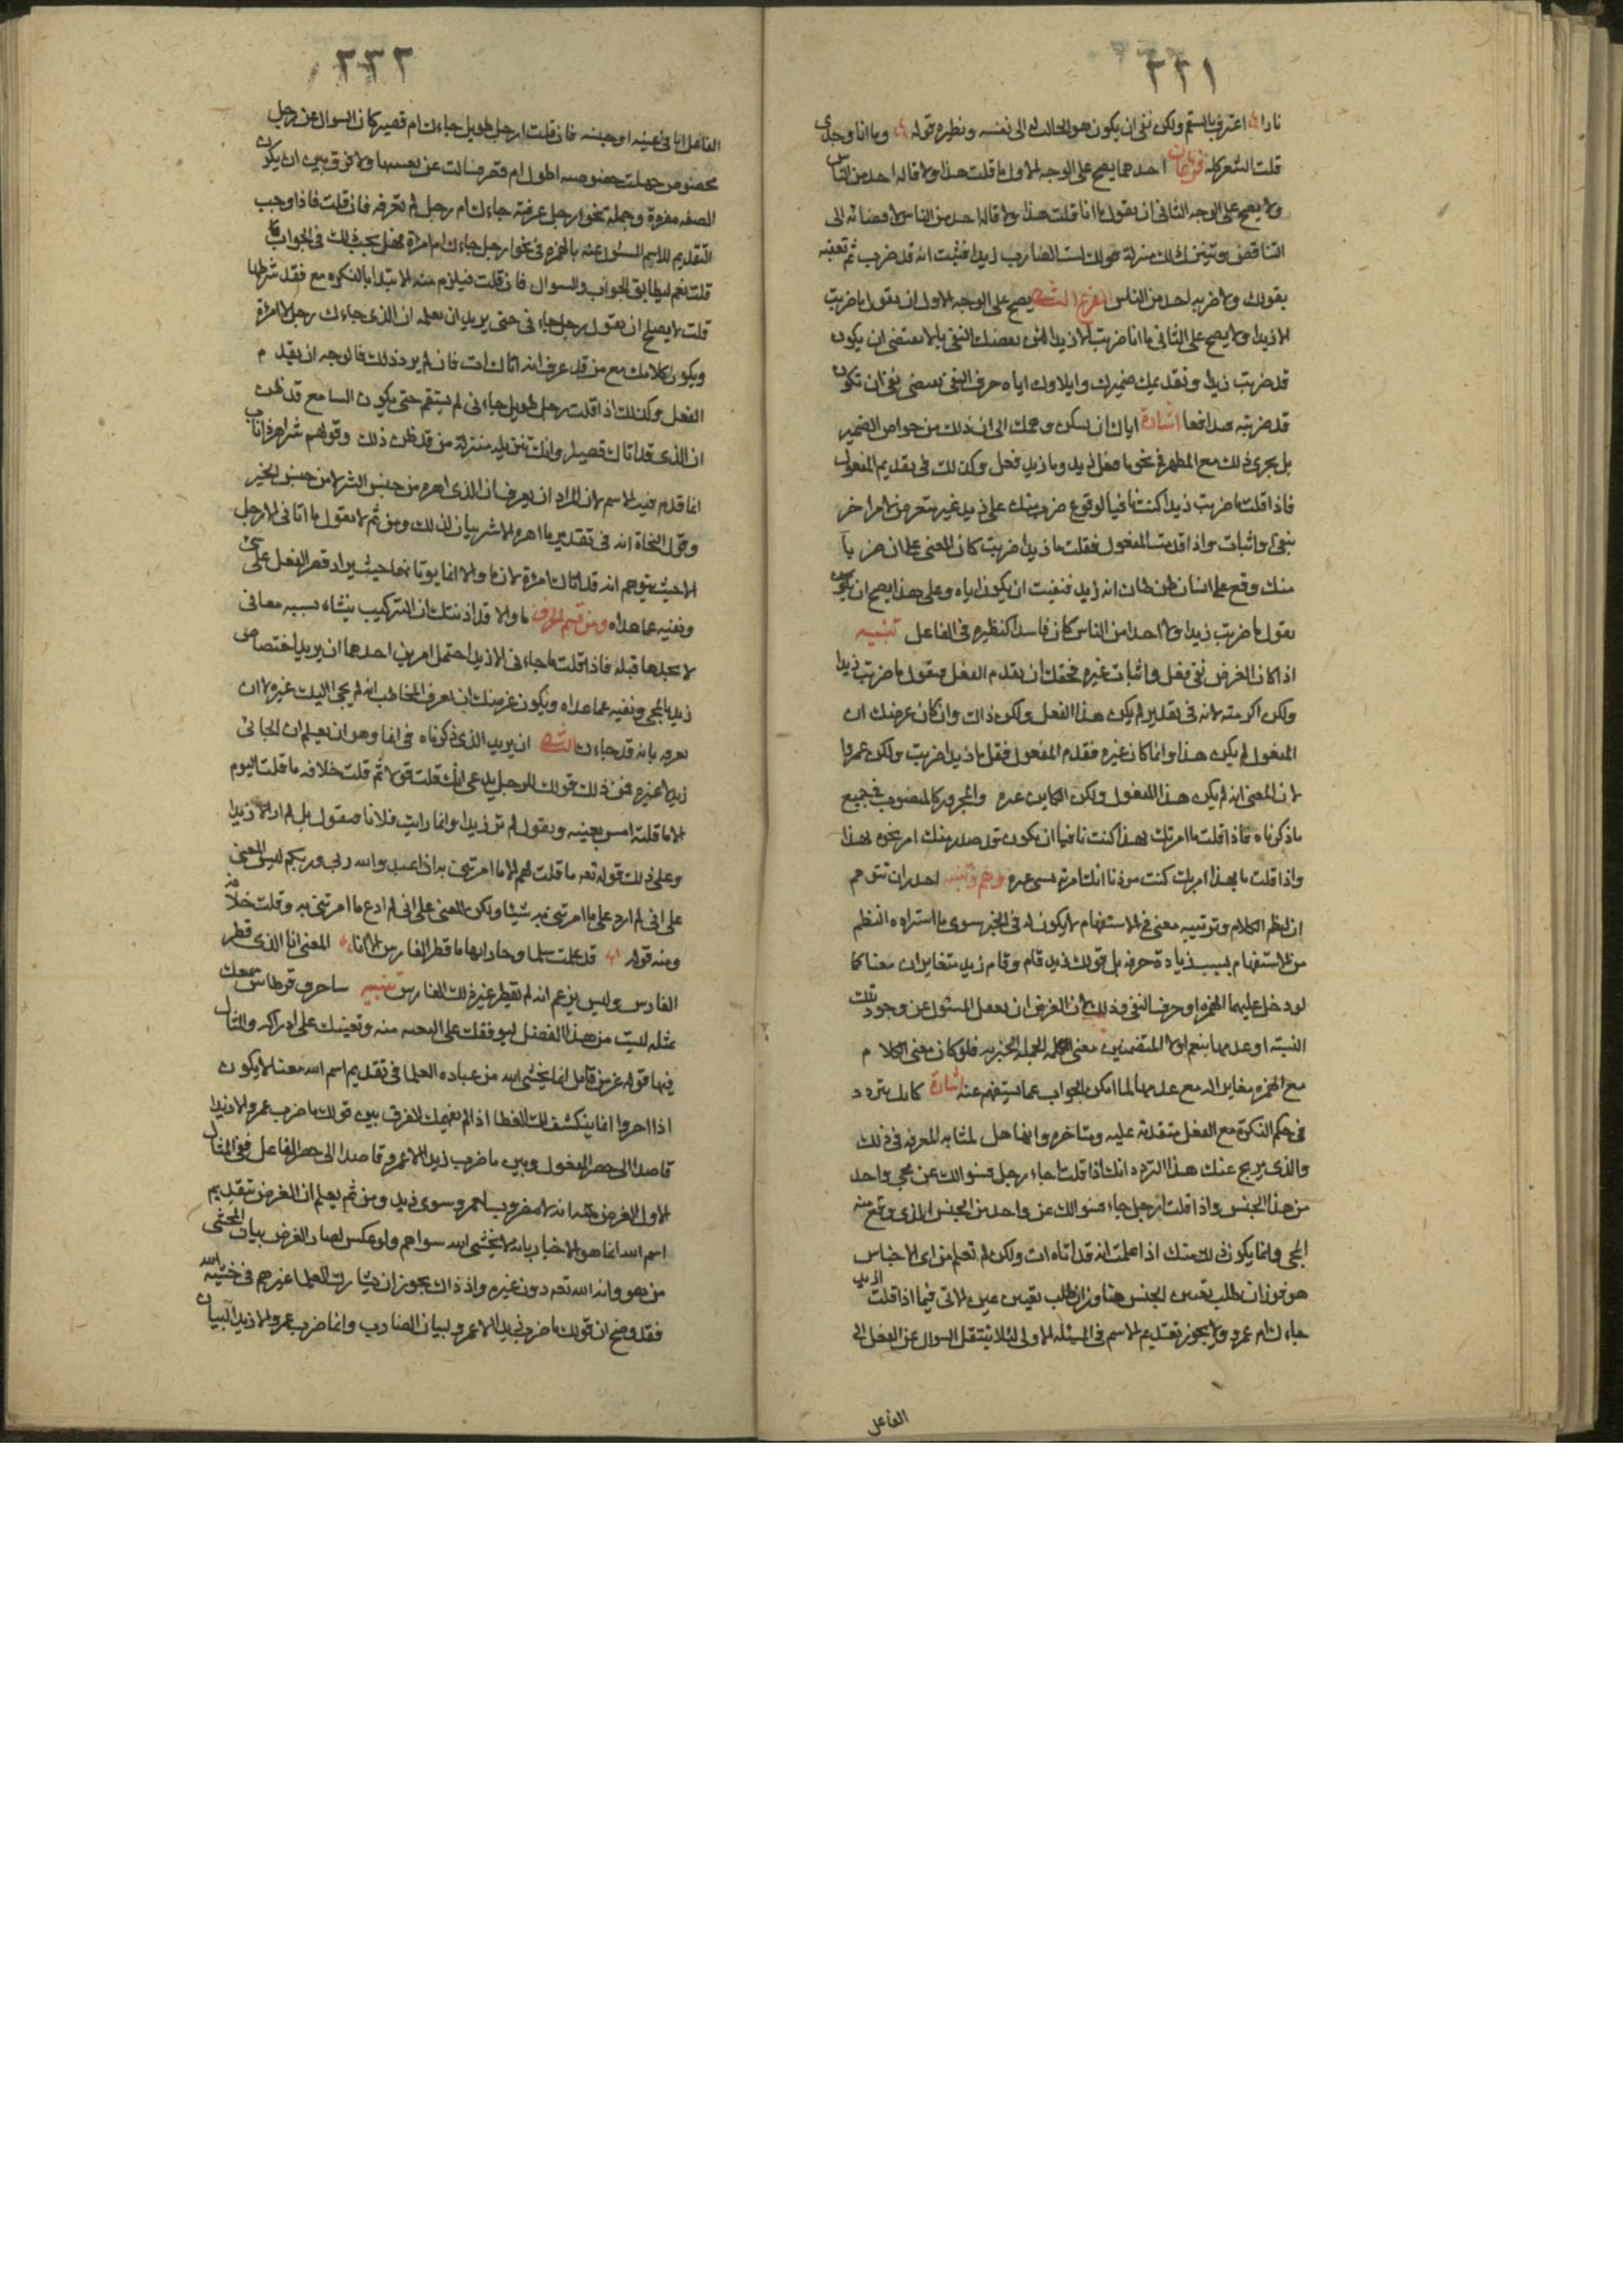 ٢٢١
نارا اعترف بالسقم ولكن نفى ان يكون هو الجالب له الى نفسه ونظيره قوله وما انا وحدى
قلت الشعر كله فرعان احدهما يصح على الوجه الاول ما قلت هذا ولا قاله احد من الناس
ولا يصح على الوجه الثانى ان يقول ما انا قلت هذا ولا قاله احد من الناس لافضائه الى
التناقض وتنزيل ذلك منزلة قولك لست الضارب زيدا فتثبت انه قد ضرب ثم تعقبه
بقولك ولا ضربه احد من الناس الفرع الثانى يصح على الوجه الاول ان يقول ما ضربت
الا زيدا ولا يصح على الثانى ما انا ضربت الا زيدا لان نقضك النفى بالا يقتضى ان يكون
قد ضربت زيدا وتقديمك ضميرك وايلاوك اياه حرف النفى يقتضى نفى ان تكون
قد ضربته فتدافعا اشارة اياك ان يسكن وهمك الى ان ذلك من خواص الضمير
بل يجرى ذلك مع المظهر فى نحو ما فعل زيد وما زيد فعل وكذلك فى تقديم المفعول
فاذا قلت ما ضربت زيدا كنت نافيا لوقوع ضرب منك على زيد غير متعرض لامر اخر
بنفى واثبات واذا قدمت المفعول فقلت ما زيدا ضربت كان المعنى على ان ضربا
منك وقع على انسان فظن ظان انه زيد فنفيت ان يكون اياه وعلى هذا يصح ان يكون
يقول ما ضربت زيدا ولا احدا من الناس كان فاسدا كنظيره فى الفاعل تنبيه
اذا كان الغرض نفى فعل واثبات غيره فحقك ان تقدم الفعل فتقول ما ضربت زيدا
ولكن اكرمته لانه فى تقدير لم يكن هذا الفعل ولكن ذاك وان كان غرضك ان
المفعول لم يكن هذا وانما كان غيره فقدم المفعول فقل ما زيدا ضربت ولكن عمروا
لان المعنى انه لم يكن هذا المفعول ولكن الكاين غيره والمجرور كالمنصوب فى جميع
ما ذكرناه فاذا قلت ما امرتك بهذا كنت نافيا ان يكون قد صدر منك امر نحوه بهذا
واذا قلت ما بهذا امرتك كنت موذنا انك امرته بشى غيره وهم وتنبيه احذر ان تتوهم
ان لنظم الكلام وترتيبه معنى فى الاستفهام لا يكون له فى الخبر سوى ما استراه النظم
من الاستفهام بسبب زيادة حرفه بل قولك زيد قام وقام زيد متغايران معنا كما
لو دخل عليهما الهمزه او حرف النفى وذلك لان الغرض ان يفعل المسئول عن وجود تلك
النسبة او عدمها بنعم او لا المتضمنين معنى الجملة الخبريه فلو كان معنى الكلام
مع الهمزه مغاير له مع عدمها لما امكن الجواب عما يستفهم عنه اشارة كانك تتردد
فى حكم النكرة مع الفعل متقدمة عليه ومتاخره وانها هل لمثابه المعرفه فى ذلك
والذى يريح عنك هذا التردد انك اذا قلت اجاء رجل فسوالك عن مجى واحد
من هذا الجنس واذا قلت ارجل جاء فسوالك عن واحد من الجنس الذى وقع منه
المجى وانما يكون ذلك منك اذا علمت انه قد اتاه ات ولكن لم تعلم من اى الاجناس
هو فوزان طلب تعيين الجنس هنا وزان طلب تعيين عين الاتى فيما اذا قلت ازيد
جاءك ام عمرو ولا يجوز تقديم الاسم فى المسئله الاولى لئلا ينتقل السوال عن الفعل الى
الفاعل
٢٢٢
الفاعل اما فى عينه او جنسه فان قلت ارجل طويل جاءك ام قصير كان السوال عن رجل
مخصوص جهلت خصوصه اطول ام قصر فسالت عن تعيينها ولا فرق بين ان يكون
الصفه مفردة وجمله نحو ارجل عرفته جاءك ام رجل لم تعرفه فان قلت فاذا وجب
التقديم للاسم المسئول عنه بالهمزه فى نحو ارجل جاءك ام امراة فهل يجب ذلك فى الجواب
قلت نعم ليطابق الجواب والسوال فان قلت فيلزم منه الابتدا بالنكره مع فقد شرطها
قلت لا يصلح ان تقول رجل جاءنى حتى يريد ان تعلمه ان الذى جاءك رجل لا امراة
ويكون كلامك مع من قد عرف انه اتاك ات فان لم يرد ذلك فالوجه ان يقدم
الفعل وكذلك اذا قلت رجل طويل جاءنى لم يستقم حتى يكون السامع قد ظن
ان الذى قد اتاك قصير او انك تنزله منزلة من قد ظن ذلك وقولهم شر اهر ذا ناب
انما قدم فيه الاسم لان المراد ان يعرف ان الذى اهره من جنس الشر لا من جنس الخير
وقول النحاة انه فى تقدير ما اهره الا شر بيان لذلك ومن ثم لا تقول ما اتانى الا رجل
الا حيث يتوهم انه قد اتاك امراة لان ما والا انما يوتا بهما حيث يراد قصر الفعل على شى
ونفيه عما عداه ومن قسم الحرف ما والا قد اذنتك ان التركيب ينشاء بسببه معانى
لا نجدها قبله فاذا قلت ما جاءنى الا زيد احتمل امرين احدهما ان يريد اختصاص
زيد بالمجى ونفيه عما عداه ويكون غرضك ان يعرف المخاطب انه لم يجى اليك غيره لا ان
تعرفه بانه قد جاءك الثانى ان يريد الذى ذكرناه فى انفا وهو ان يعلم ان الجائى
زيد لا غيره فمن ذلك قولك للرجل يدعى انك قلت قولا ثم قلت خلافه ما قلت اليوم
الا ما قلته امس بعينه ويقول لم تر زيدا وانما رايت فلانا فتقول بل لم ار الا زيدا
وعلى ذلك قوله تعه ما قلت لهم الا ما امرتنى به ان اعبدوا الله ربى وربكم ليس المعنى
على انى لم ازد على ما امرتنى به شيئا ولكن المعنى على انى لم ادع ما امرتنى به وقلت خلافه
ومنه قوله قد علمت سلما وجاراتها ما قطر الفارس الا انا المعنى انا الذى قطر
الفارس وليس يزعم انه لم يقطر غير ذلك الفارس تنبيه ساحرف قرطاس سمعك
بمثله لست من هذا الفصل ليوفقك على البحث منه وتعينك على ادراكه والمثال
فيها قوله عز من قايل انما يخشى الله من عباده العلما فى تقديم اسم الله معنا لا يكون
اذا اخروا انما ينكشف لك الغطا اذا لم يفهمك الفرق بين قولك ما ضرب عمرو الا زيدا
قاصدا الى حصر المفعول وبين ما ضرب زيدا الا عمرو قاصدا الى حصر الفاعل ففى المثال
الاول الغرض منه انه لا مضروب لعمرو سوى زيد ومن ثم يعلم ان الغرض بتقديم
اسم الله انما هو الاخبار بانه لا يخشى الله سواهم ولو عكس لصار الغرض بيان المخشى
من هو وانه الله تعه دون غيره واذ ذاك يجوز ان يشارك العلما غيرهم فى خشيه الله
فقد وضح ان قولك ما ضرب زيدا الا عمرو لبيان الضارب وانما ضرب عمرو الا زيدا لبيان